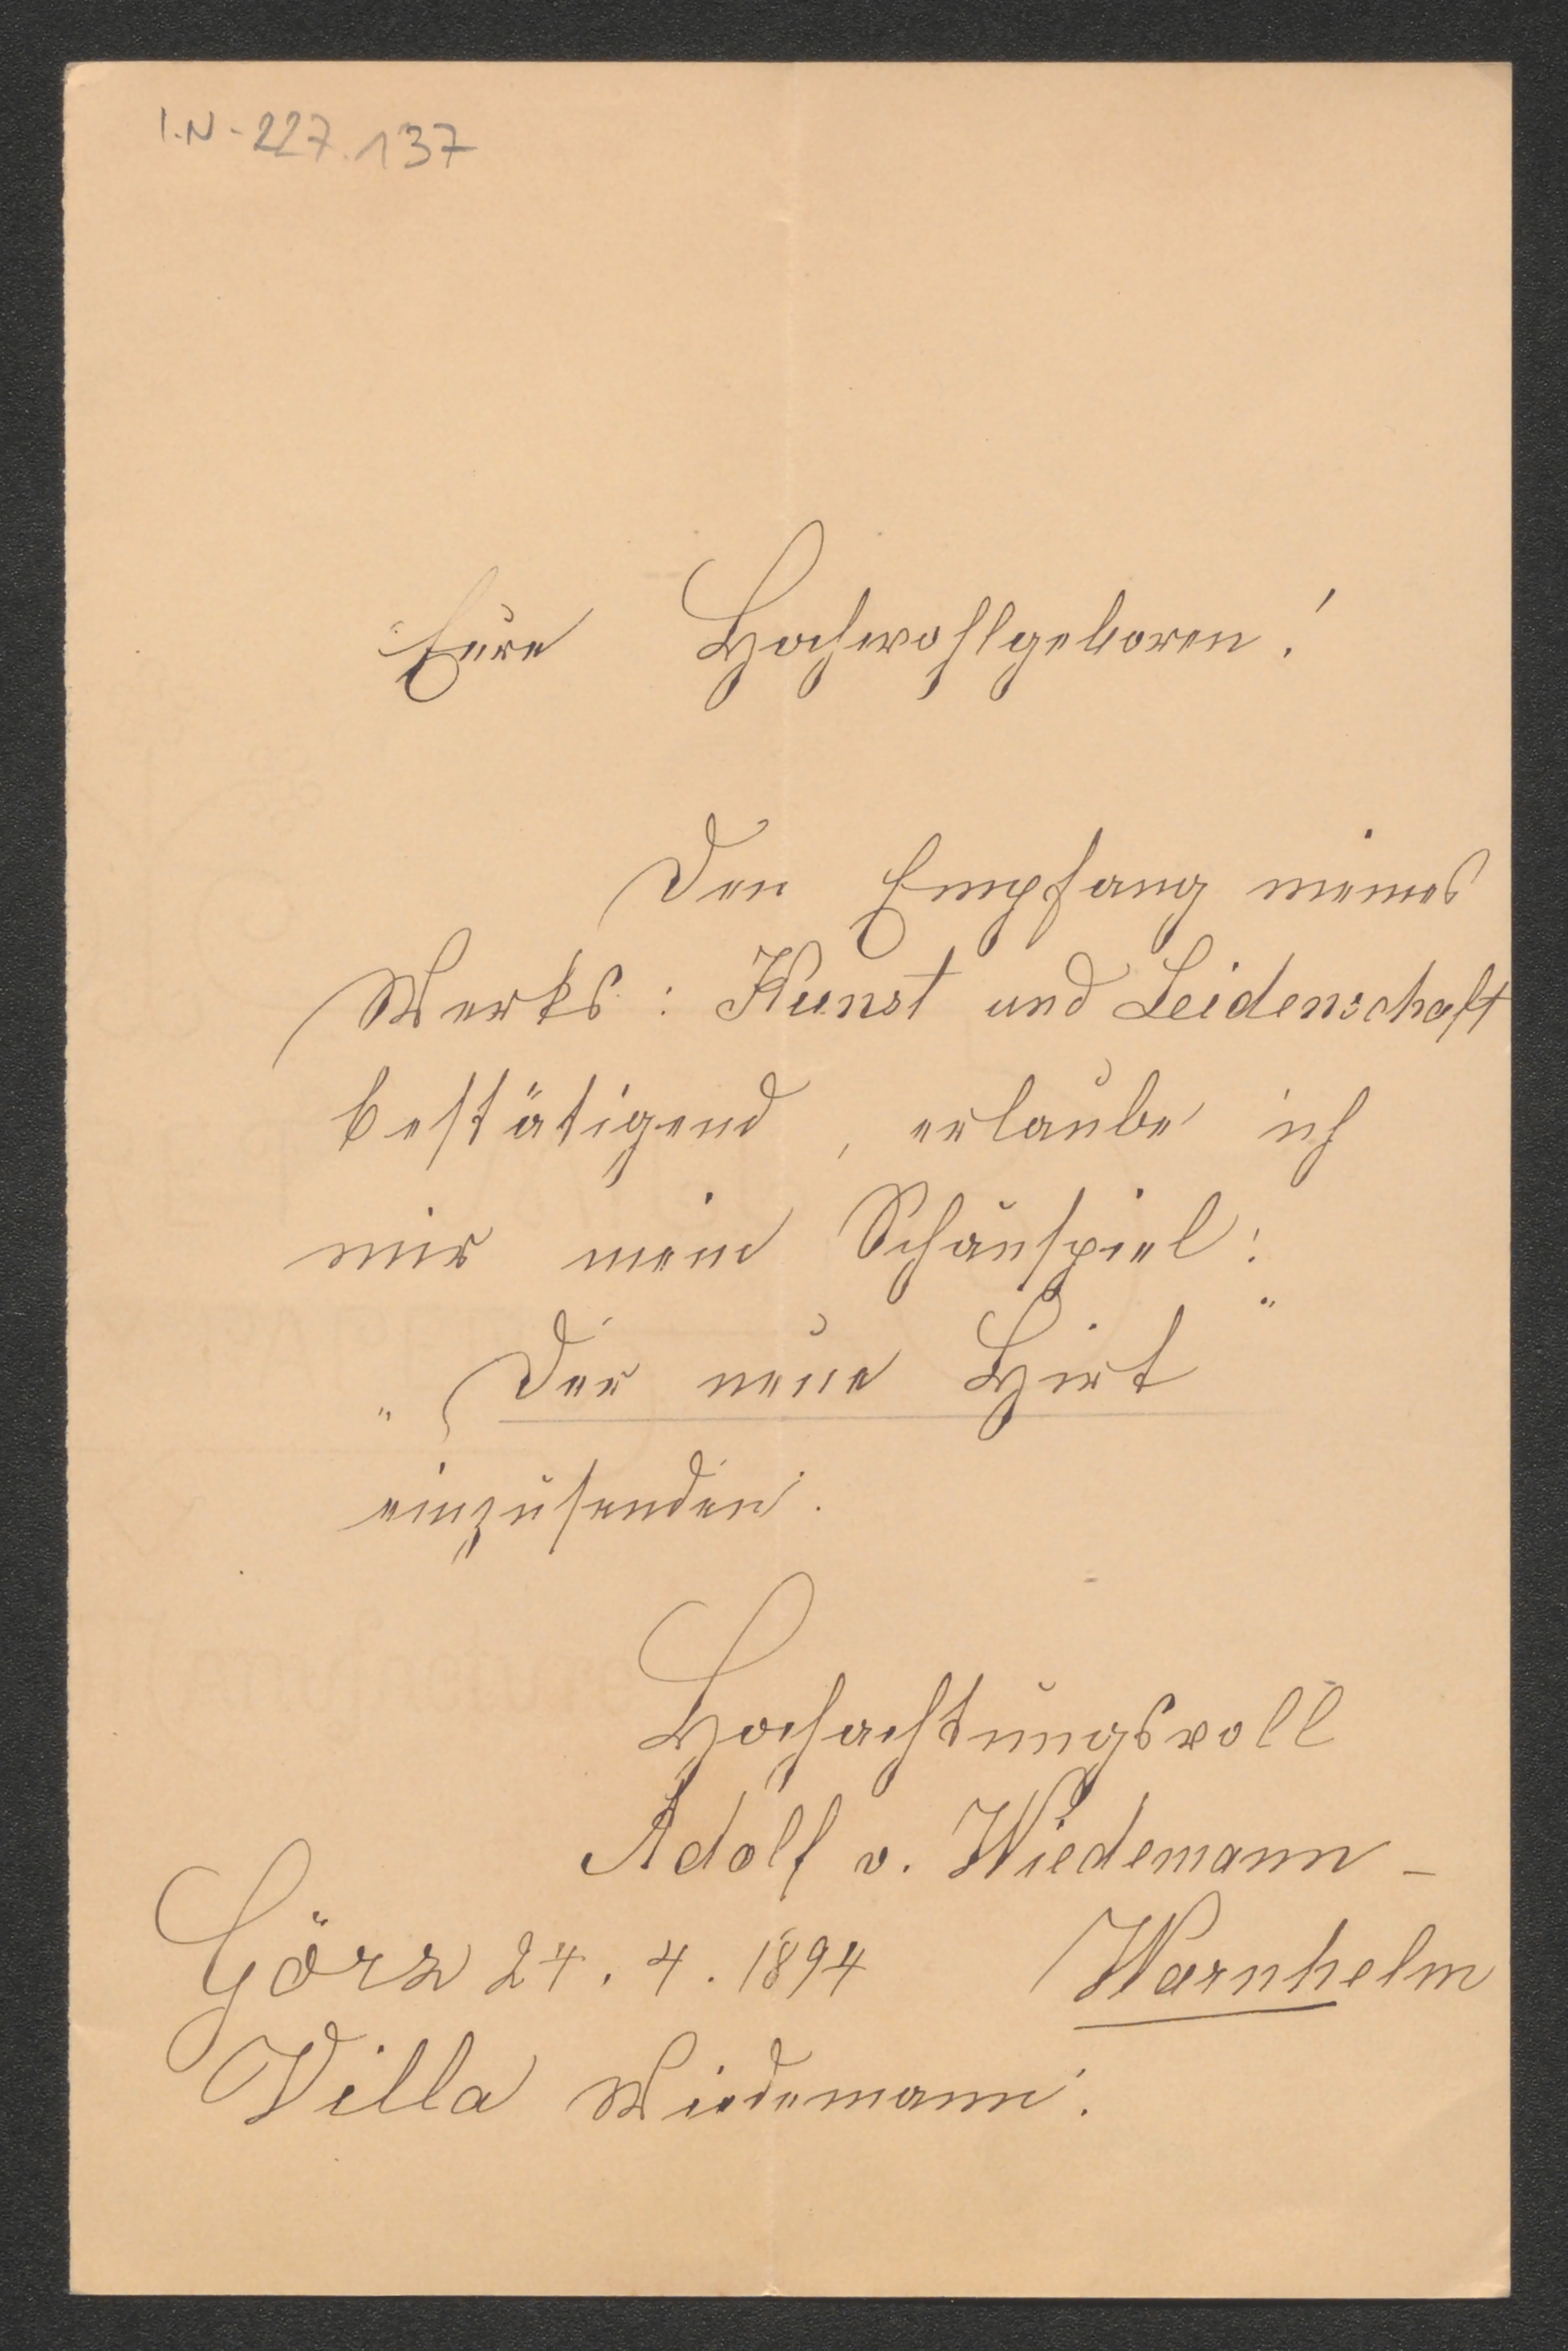 I.N-227.137
Eure Hochwohlgeboren!
Den Empfang meines
Werks: Kunst und Leidenschaft
bestätigend, erlaube ich
mir mein Schauspiel:
„Der neue Hirt“
einzusenden.
Hochachtungsvoll
Adolf v. Wiedemann-
Warnhelm
Görz 24. 4. 1894
Villa Wiedemann.